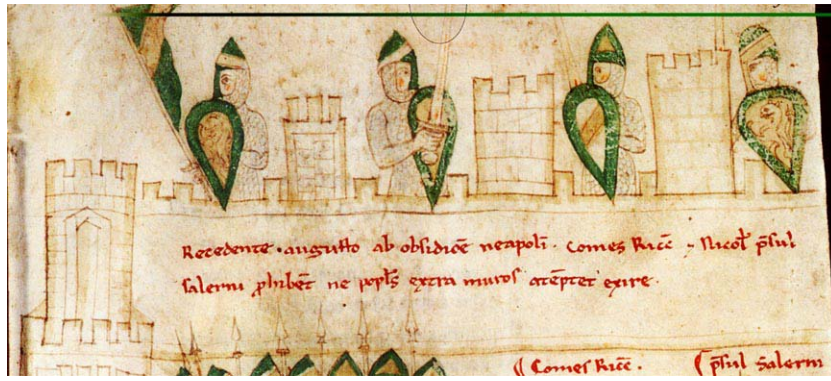 Recedente · augusto ab obsidiōe neapoli · Comes Ricc̄ · Nicol̄ p̄sul
salerni phibēt ne popl̄s extra muros atēptet exire ·
Comes Ricc̄ · p̄sul Salerni